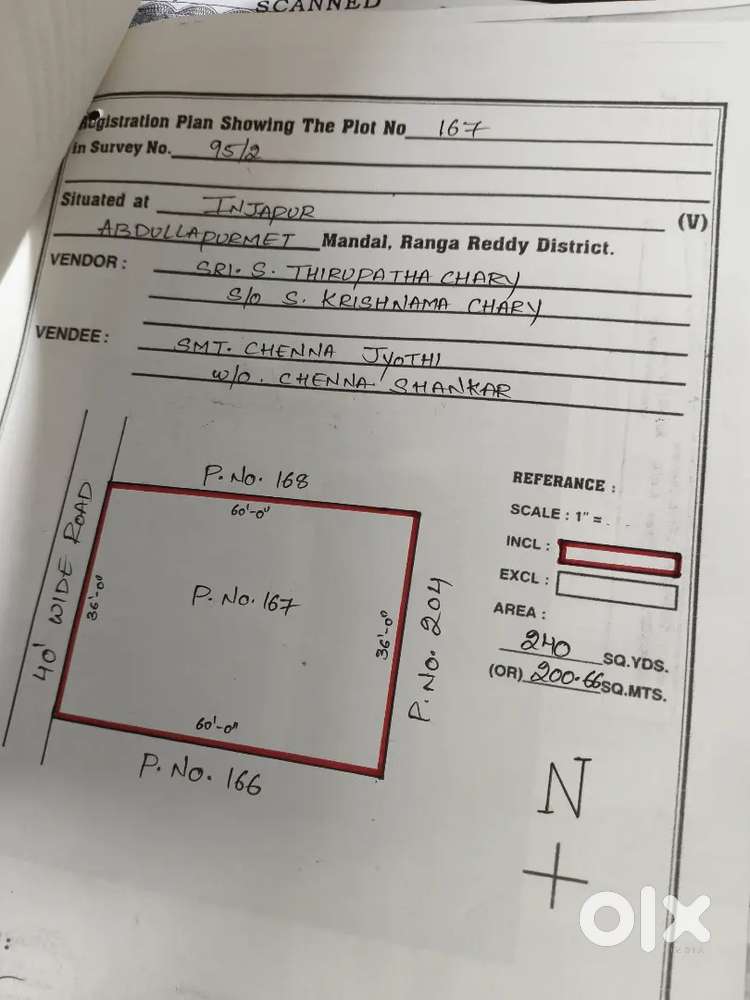 SCANNED
Registration Plan Showing The Plot No 167
in Survey No. 95/2
Situated at INJAPUR (V)
ABDULLAPURMET Mandal, Ranga Reddy District.
VENDOR : SRI. S. THIRUPATHA CHARY
S/o S. KRISHNAMA CHARY
VENDEE : SMT. CHENNA JYOTHI
W/o. CHENNA SHANKAR
P. No. 168
60'-0"
40' WIDE ROAD
36'-0"
P. No. 167
36'-0"
P. No. 204
60'-0"
P. No. 166
REFERANCE :
SCALE : 1" =
INCL :
EXCL :
AREA :
240 SQ.YDS.
(OR) 200.66 SQ.MTS.
N
olx